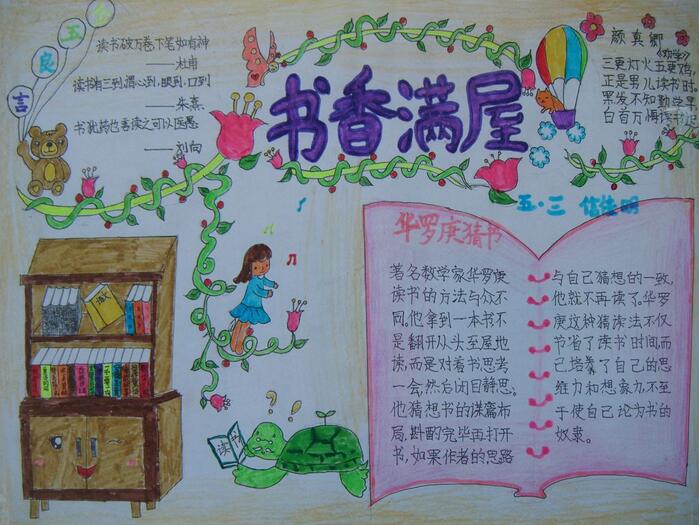 书香满屋
五
良
言
读书破万卷下笔如有神
——杜甫
读书有三到,谓心到,眼到,口到
——朱熹
书犹药也善读之可以医愚
——刘向
颜真卿
《劝学》
三更灯火五更鸡
正是男儿读书时
黑发不知勤学早
白首方悔读书迟
五·三
华罗庚猜书
著名数学家华罗庚
读书的方法与众不
同。他拿到一本书不
是翻开从头至尾地
读,而是对着书思考
一会,然后闭目静思。
他猜想书的谋篇布
局,斟酌完毕再打开
书,如果作者的思路
与自己猜想的一致,
他就不再读了。华罗
庚这种猜读法不仅
节省了读书时间,而
己培养了自己的思
维力和想象力,不至
于使自己沦为书的
奴隶。
读书